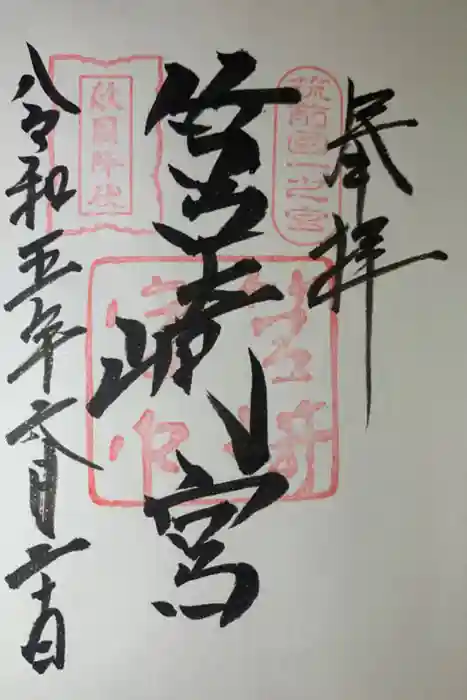 奉拝
筑前國一之宮
筥崎宮
筥崎
宮印
敵國降伏
令和五年六月二十日